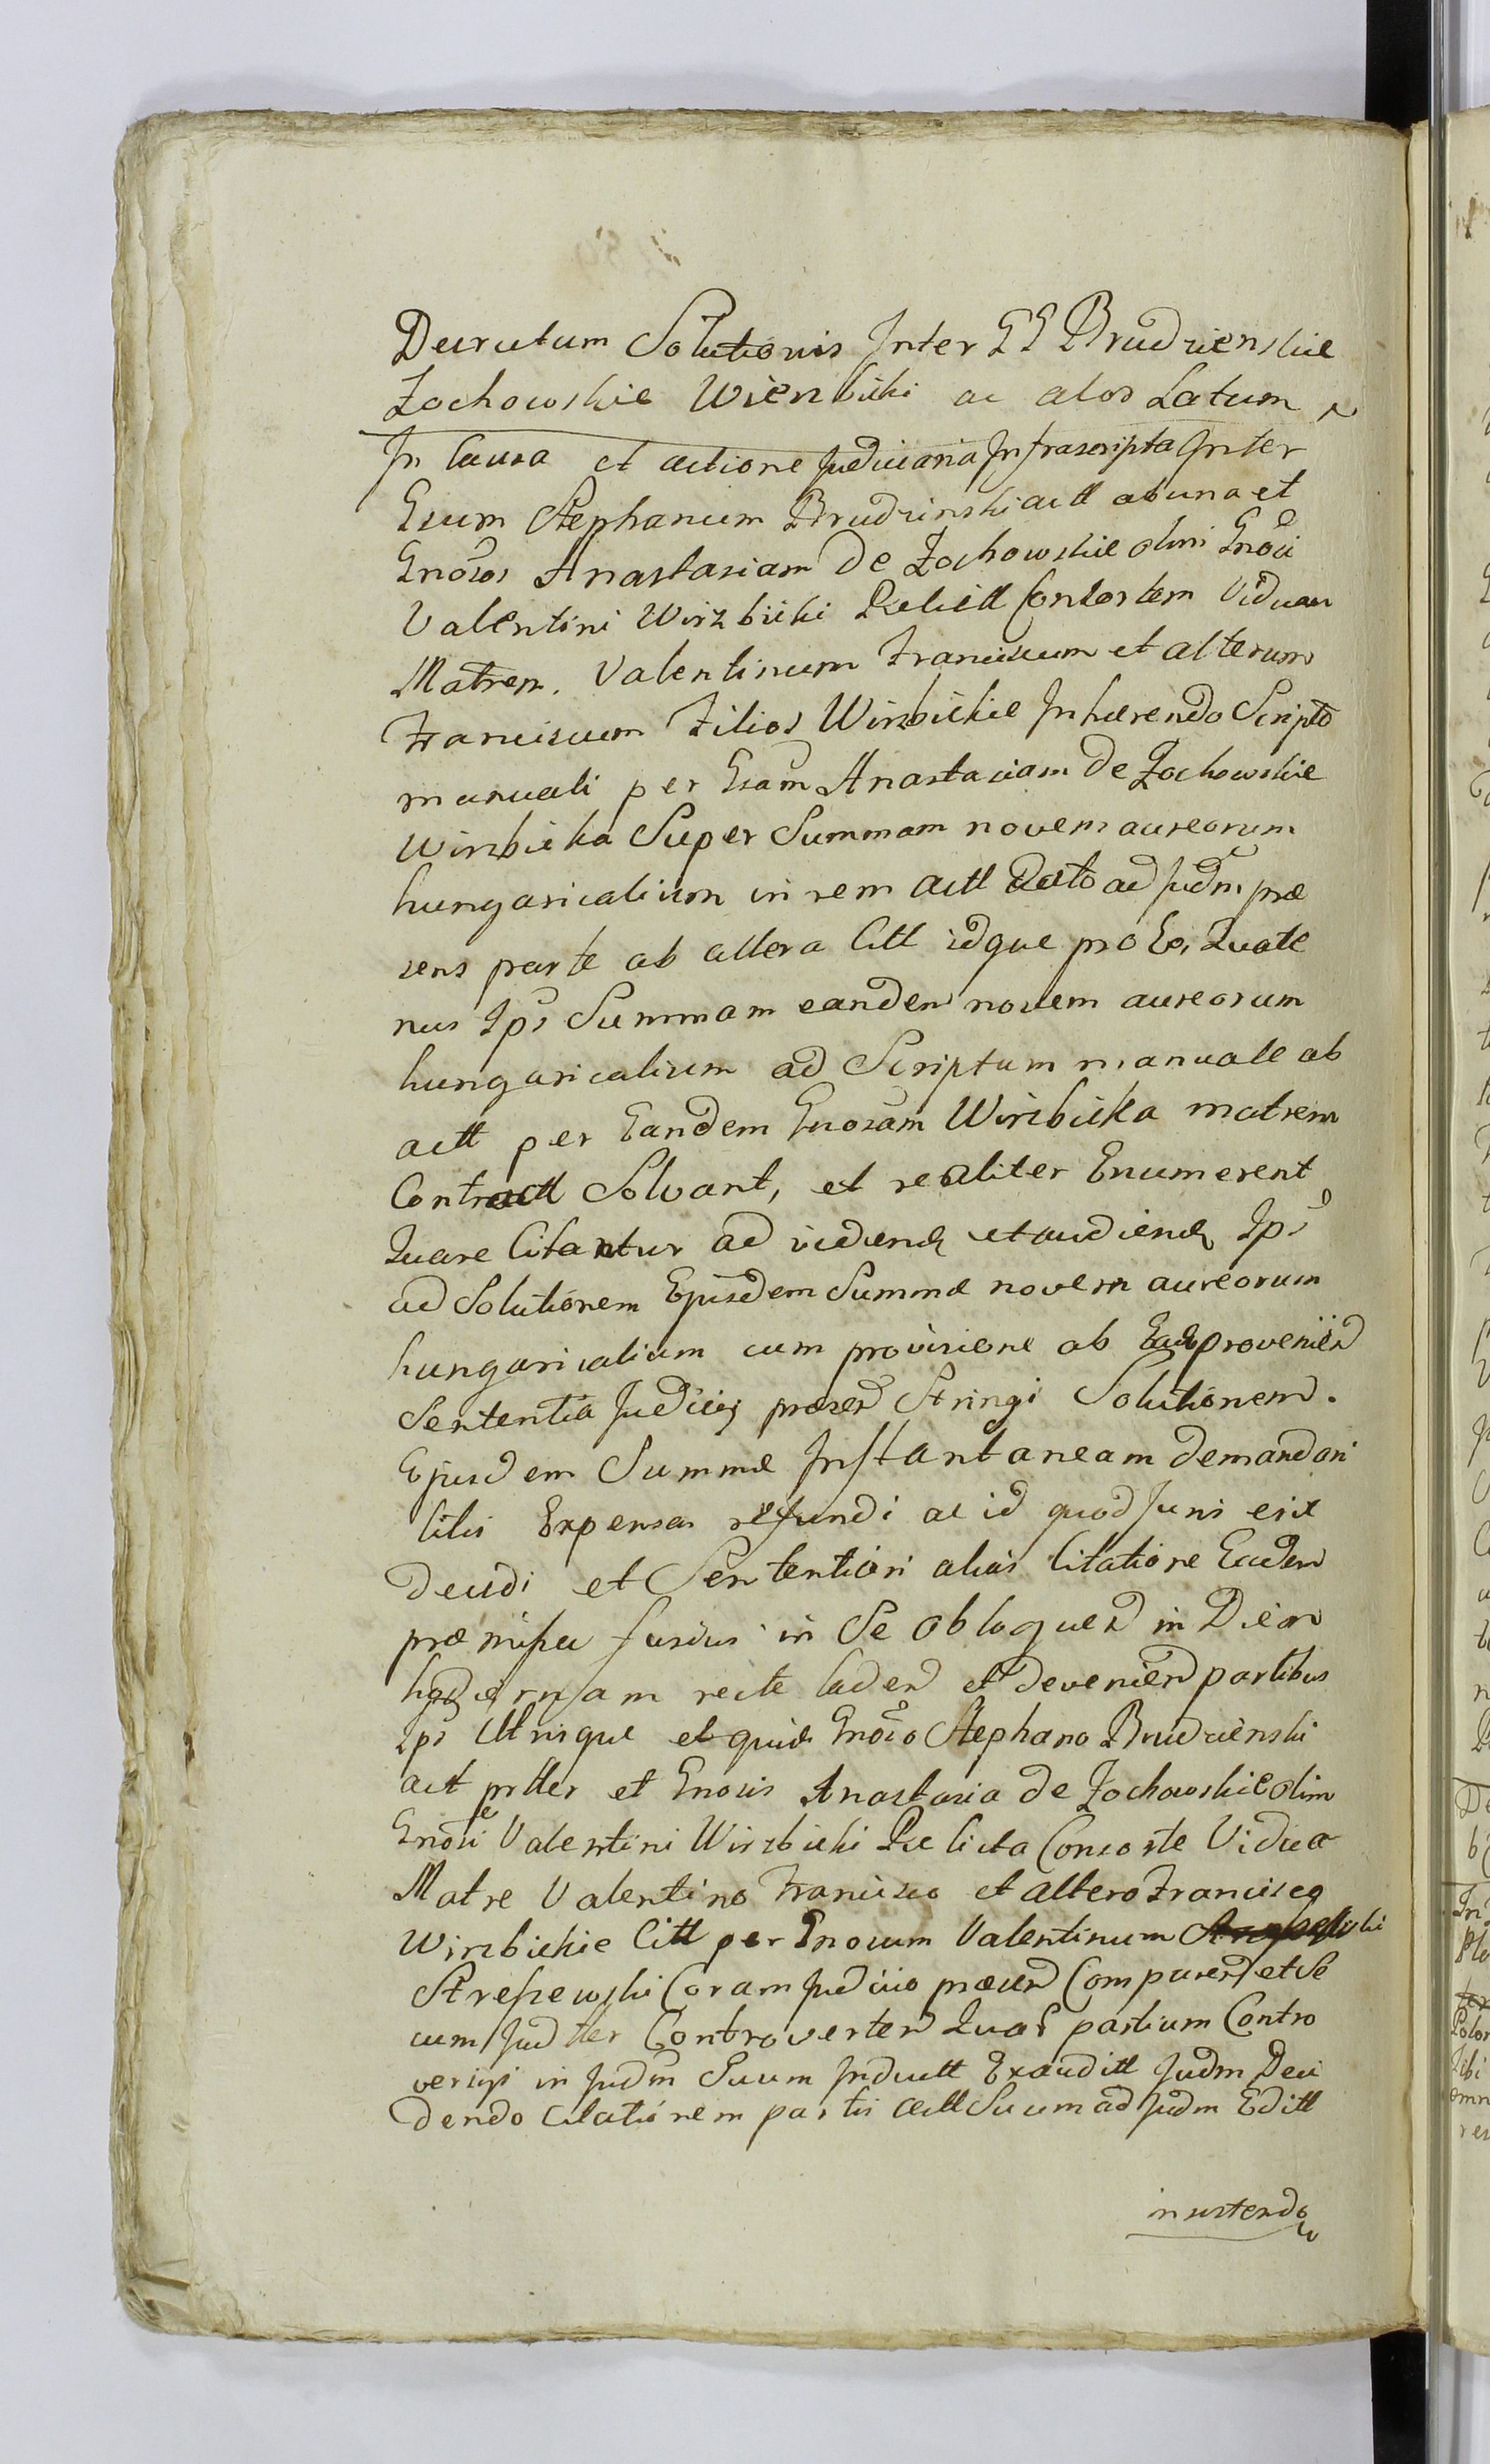 Decretum Solutionis Inter GG Brudzienskie
Zochowskie Wierzbicki ac alos Latum
In Causa et actione Judiciaria Infrascripta Inter
Gsum Stephanum Brudzinski actt ab una et
Gnosos Anastasiam De Zochowskie olim Gnosi
Valentini Wirzbicki Relictt Consortem Viduam
Matrem. Valentinum Franciscum et alterum
Franciscum Filios Wirzbickie Inhærendo Scripto
manuali per Gsam Anastasiam De Zochowskie
Wirzbicka Super Summam novem aureorum
hungaricalium in rem actt Dato ad Judm præ
sens parte ab altera Citt idque pro Eo, Quate
nus Ipsi Summam eandem novem aureorum
hungaricalium ad Scriptum manuale ab
actt per Eandem Gnosam Wirzbicka matrem
Contractt Solvant, et realiter Enumerent
Quare Citantur ad videnđ et audienđ Ipsi
ad Solutionem Ejusdem Summæ novem aureorum
hungaricalium cum provisione ab Eade provenieñ
Sententia Judicij præseñ Stringi Solutionem.
Ejusdem Summæ Instantaneam demandari
litis Expensas refundi ac id quod Juris erit
decidi et Sententiari alias Citatione Eadem
præmissa fusius in Se obloqueñ in Diem
hodiernam recte Cadeñ et devenieñ partibus
Ipsi Utrisque et quide Gnoso Stephano Brudzienski
act prtter et Gnosis Anastasia de Zochowskie olim
Gnosi Valentini Wirzbicki Relicta Consorte Vidua
Matre Valentino Francisco et altero Francisco
Wirzbickie Citt per Gnosum Valentinum
Strefzewski Coram Judicio præseñ Compareñ et Se
cum Judtter Controverteñ Quas partium Contro
versijs in Judm Suum Inductt Exauditt Judm Deci
dendo Citationem partis actt Suum ad Judm Editt
insistendo